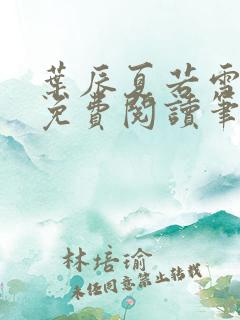 葉辰夏若雪
免費閱讀筆
林培瑜
未经同意禁止转载